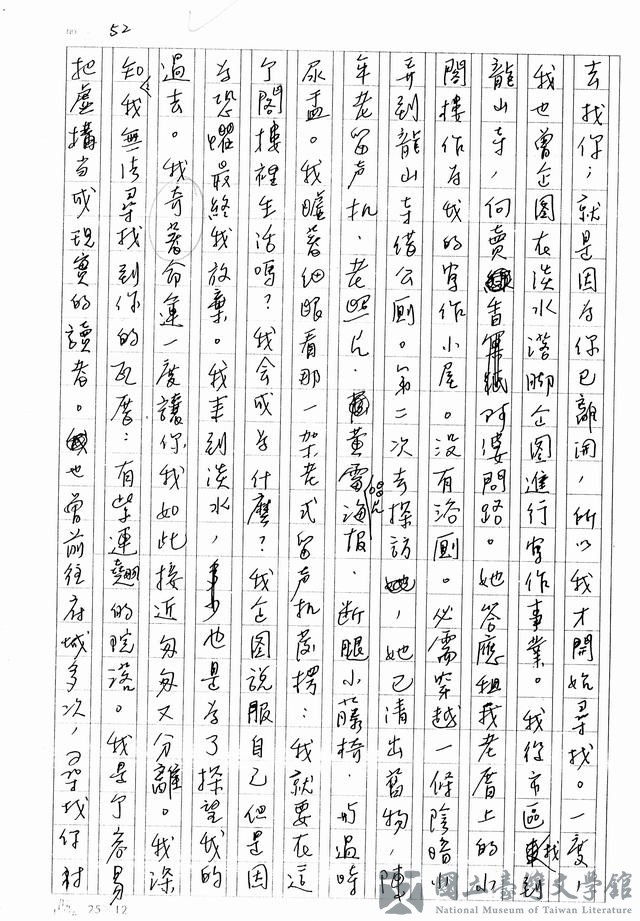 52
去找你；就是因为你已離開，所以我才開始尋找。一度，
我也曾企图在淡水落脚企图進行字作事業。我從市區我到
龍山寺，向賣香阿婆問路。她答應租我老厝上的小
閣樓作为我的字作小屋。没有浴厕。必需穿越一條陰暗小
弄到龍山寺借公厕。第二次去探訪，她已清出舊物，陳
年老留声机．老照片．黄雷海报．断腿小藤椅．与過時
尿盂。我瞻著细眼看那一架老式留声机發愣：我就要在這
个閣樓裡生活嗎？我会成为什麽？我企图說服自己但是因
为恐懼最終我放棄。我来到淡水，也是为了探望我的
過去。我奇蓍命運一度讓你我如此接近匆匆又分離。我深
知我無法尋找到你的瓦厝：有芽連翹的院落。我是个容易
把虚構当成現實的讀者。也曾前往府城多次，尋找你村
25 12
國立臺灣文學館
National Museum of Taiwan Literature